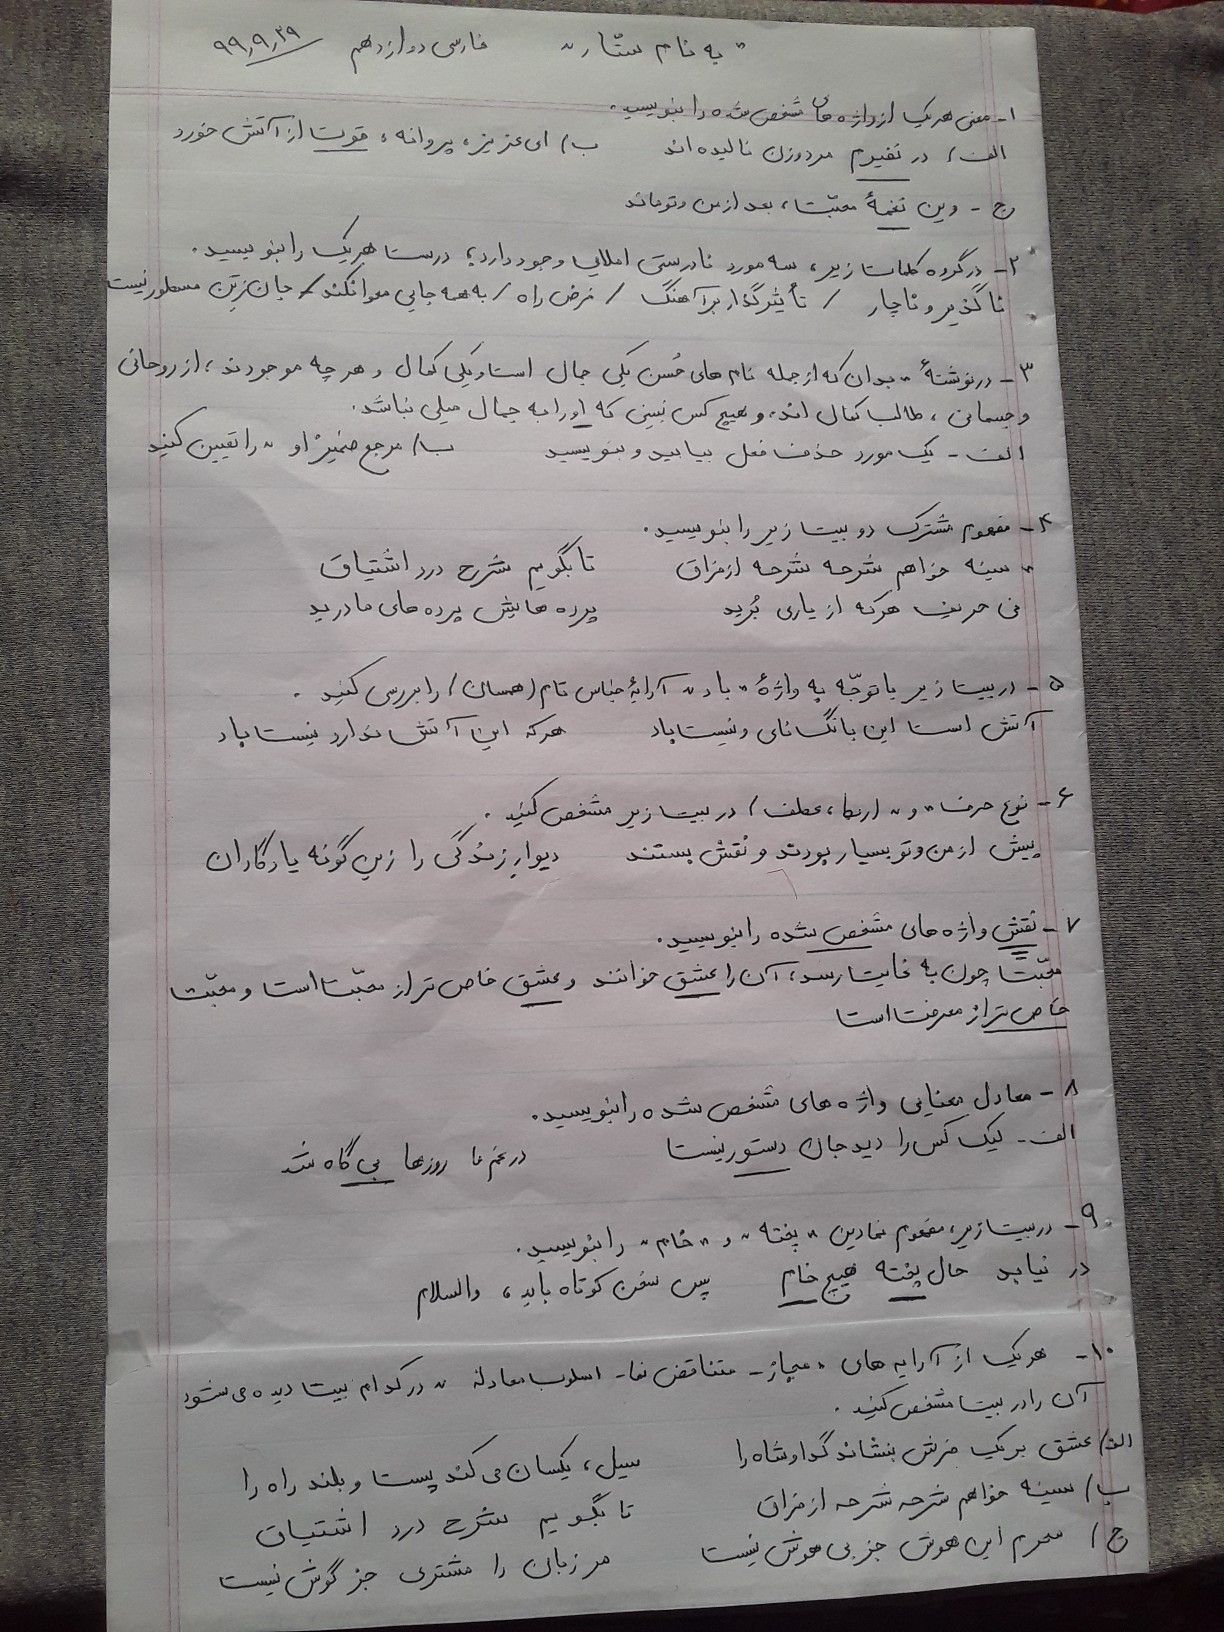 " به نام ستّار " فارسی دوازدهم ۹۹٫۹٫۲۹
۱- معنی هریک از واژه های مشخص شده را بنویسید.
الف/ در نفیرم مرد و زن نالیده اند ب/ ای عزیز، پروانه، قوت از آتش خورد
ج- وین نغمهٔ محبّت، بعد از من و تو ماند
۲- در گروه کلمات زیر، سه مورد نادرستی املایی وجود دارد؛ درست هریک را بنویسید.
ناگذیر و ناچار / تأثیرگذار برآهنگ / فرض راه / به همه جایی معوا نکند / جان زتن مسطور نیست
۳- در نوشتهٔ " بدان که از جمله نام های حُسن یکی جمال است و یکی کمال و هر چه موجودند، از روحانی
و جسمانی، طالب کمال اند. و هیچ کس نبینی که او را به جمال میلی نباشد.
الف- یک مورد حذف فعل بیابید و بنویسید ب/ مرجع ضمیر "او " را تعیین کنید
۴- مفهوم مشترک دو بیت زیر را بنویسید.
" سینه خواهم شرحه شرحه از فراق تا بگویم شرح درد اشتیاق
نی حریف هرکه از یاری بُرید پرده هایش پرده های ما درید
۵- در بیت زیر با توجّه به واژهٔ " باد " آرایهٔ جناس تام (همسان) را بررسی کنید.
آتش است این بانگ نای و نیست باد هرکه این آتش ندارد نیست باد
۶- نوع حرف " و " (ربط، عطف) در بیت زیر مشخص کنید.
پیش از من و تو بسیار بودند و نقش بستند دیوار زندگی را زین گونه یادگاران
۷- نقش واژه های مشخص شده را بنویسید.
محبّت چون به غایت رسد، آن را عشق خوانند و عشق خاص تر از محبّت است و محبّت
خاص تر از معرفت است
۸- معادل معنایی واژه های مشخص شده را بنویسید.
الف- لیک کس را دید جان دستور نیست در غم ما روزها بی گاه شد
۹- در بیت زیر، مفهوم نمادین " پخته " و " خام " را بنویسید.
در نیابد حال پخته هیچ خام پس سخن کوتاه باید، والسلام
۱۰- هریک از آرایه های " مجاز- متناقض نما- اسلوب معادله " در کدام بیت دیده می شود
آن را در بیت مشخص کنید.
الف/ عشق بر یک فرش بنشاند گدا و شاه را سیل، یکسان می کند پست و بلند راه را
ب/ سینه خواهم شرحه شرحه از فراق تا بگویم شرح درد اشتیاق
ج/ محرم این هوش جز بی هوش نیست مر زبان را مشتری جز گوش نیست